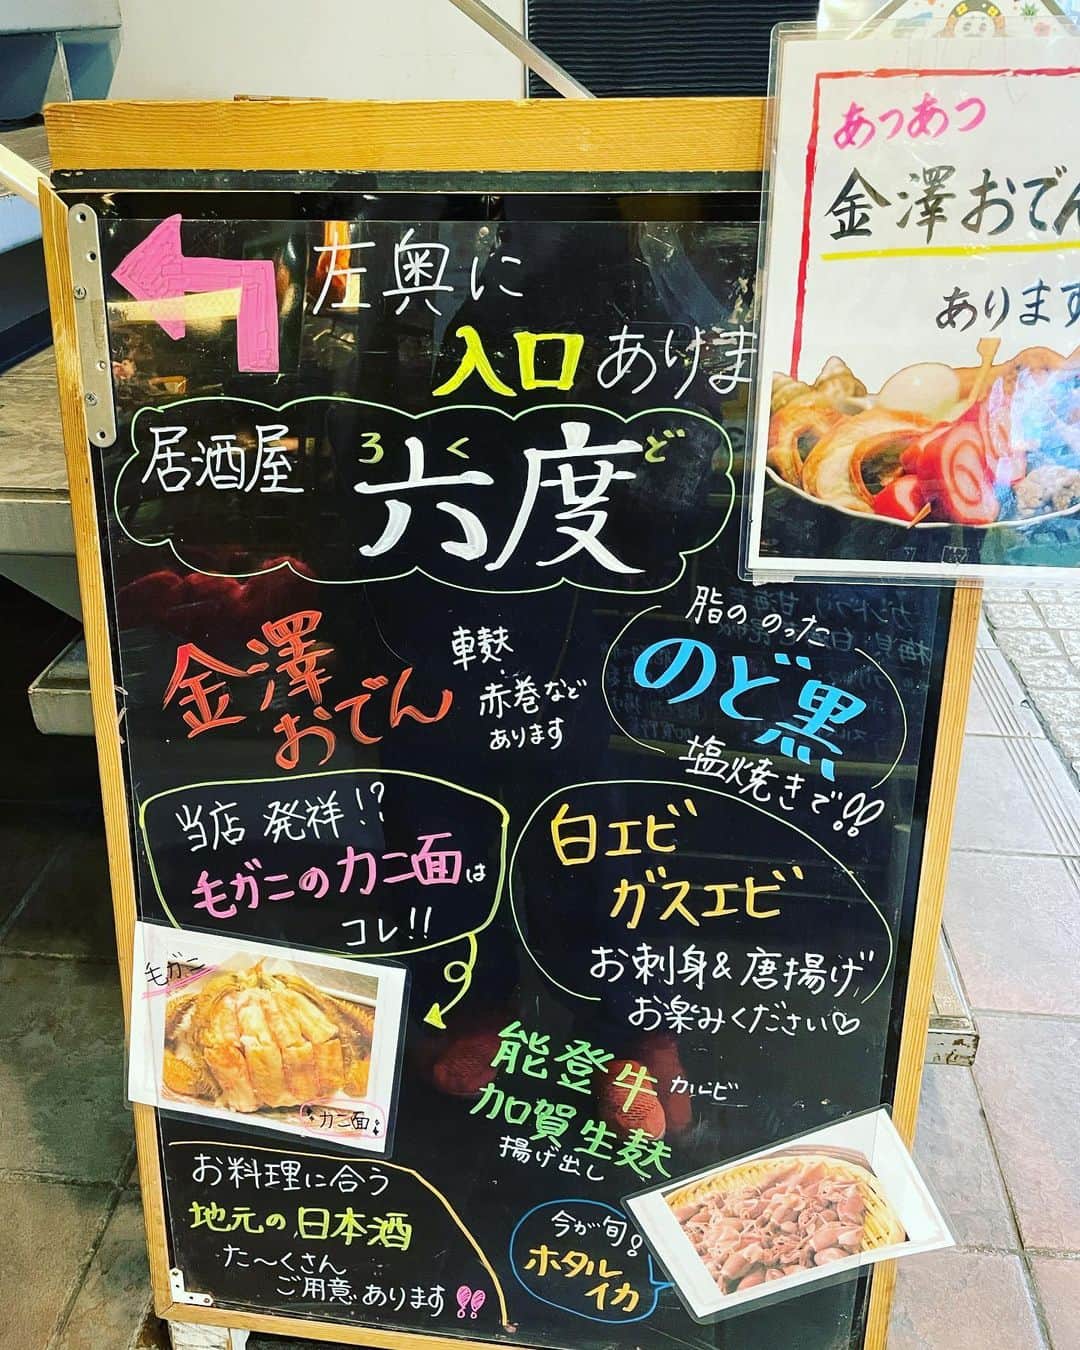 あつあつ
金澤おでん
あります
左奥に
入口ありま
居酒屋
ろくど
六度
金澤
おでん
車麩
赤巻など
あります
脂ののった
のど黒
塩焼きで!!
当店発祥!?
毛ガニのカニ面は
コレ!!
白エビ
ガスエビ
お刺身&唐揚げ
お楽みください♡
毛ガニ
カニ面
能登牛カルビ
加賀生麩
揚げ出し
お料理に合う
地元の日本酒
た〜くさん
ご用意あります!!
今が旬!
ホタル
イカ